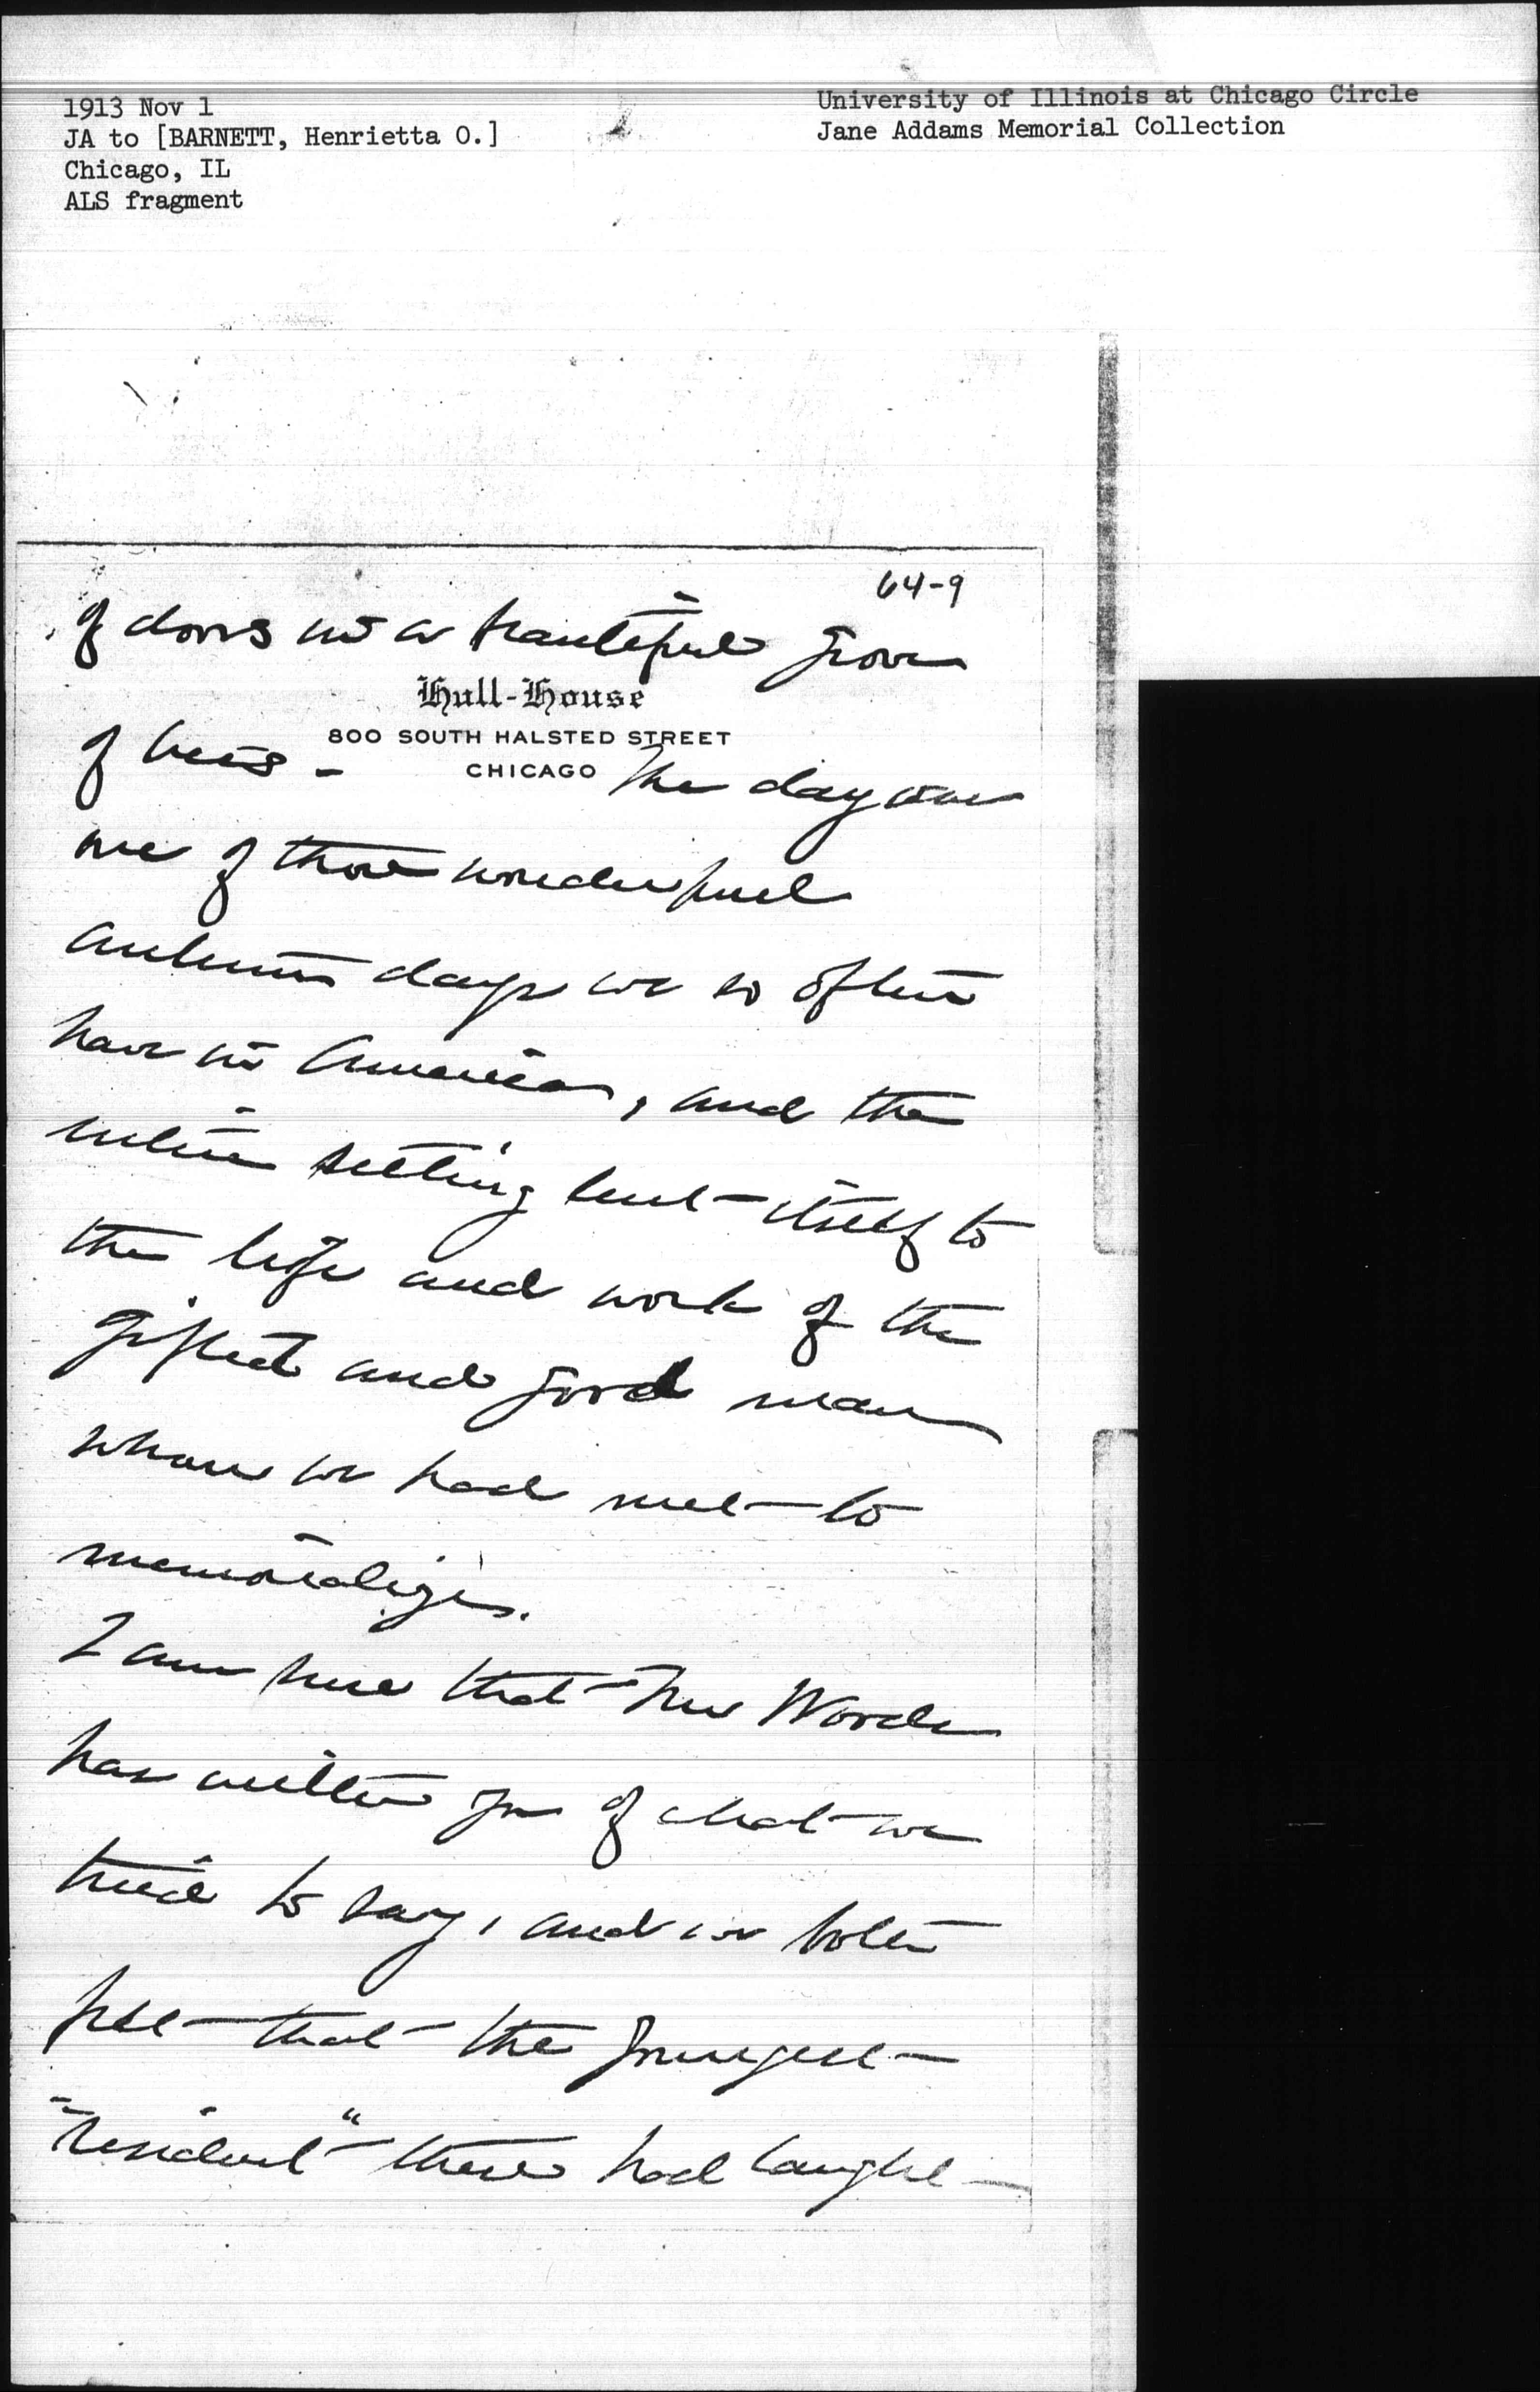 1913 Nov 1
JA to [BARNETT, Henrietta O.]
Chicago, IL
ALS fragment
University of Illinois at Chicago Circle
Jane Addams Memorial Collection
64-9
of doors in a beautiful grove
Hull-House
800 SOUTH HALSTED STREET
CHICAGO
of trees - The day was
one of those wonderful
autumn days we so often
have in America, and the
entire setting lent itself to
the life and work of the
gifted and good man
whom we had met to
memorialize.
I am sure that Mrs Woods
has written you of what we
tried to say, and we both
felt that the youngest
"resident" there had caught